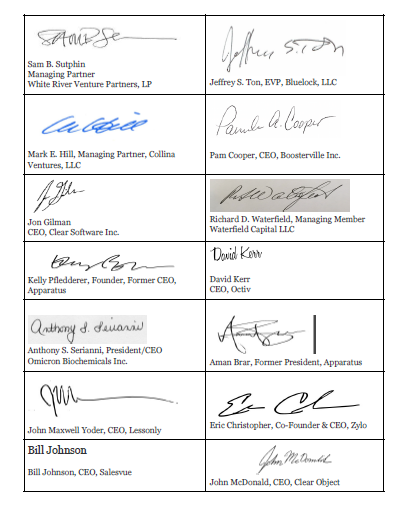 Sam B. Sutphin
Managing Partner
White River Venture Partners, LP
Jeffrey S. Ton
Jeffrey S. Ton, EVP, Bluelock, LLC
Mark E. Hill, Managing Partner, Collina
Ventures, LLC
Pamela A. Cooper
Pam Cooper, CEO, Boosterville Inc.
Jon Gilman
CEO, Clear Software Inc.
Richard D. Waterfield, Managing Member
Waterfield Capital LLC
Kelly Pfledderer, Founder, Former CEO,
Apparatus
David Kerr
David Kerr
CEO, Octiv
Anthony S. Serianni
Anthony S. Serianni, President/CEO
Omicron Biochemicals Inc.
Aman Brar, Former President, Apparatus
John Maxwell Yoder, CEO, Lessonly
Eric Christopher, Co-Founder & CEO, Zylo
Bill Johnson
Bill Johnson, CEO, Salesvue
John McDonald
John McDonald, CEO, Clear Object